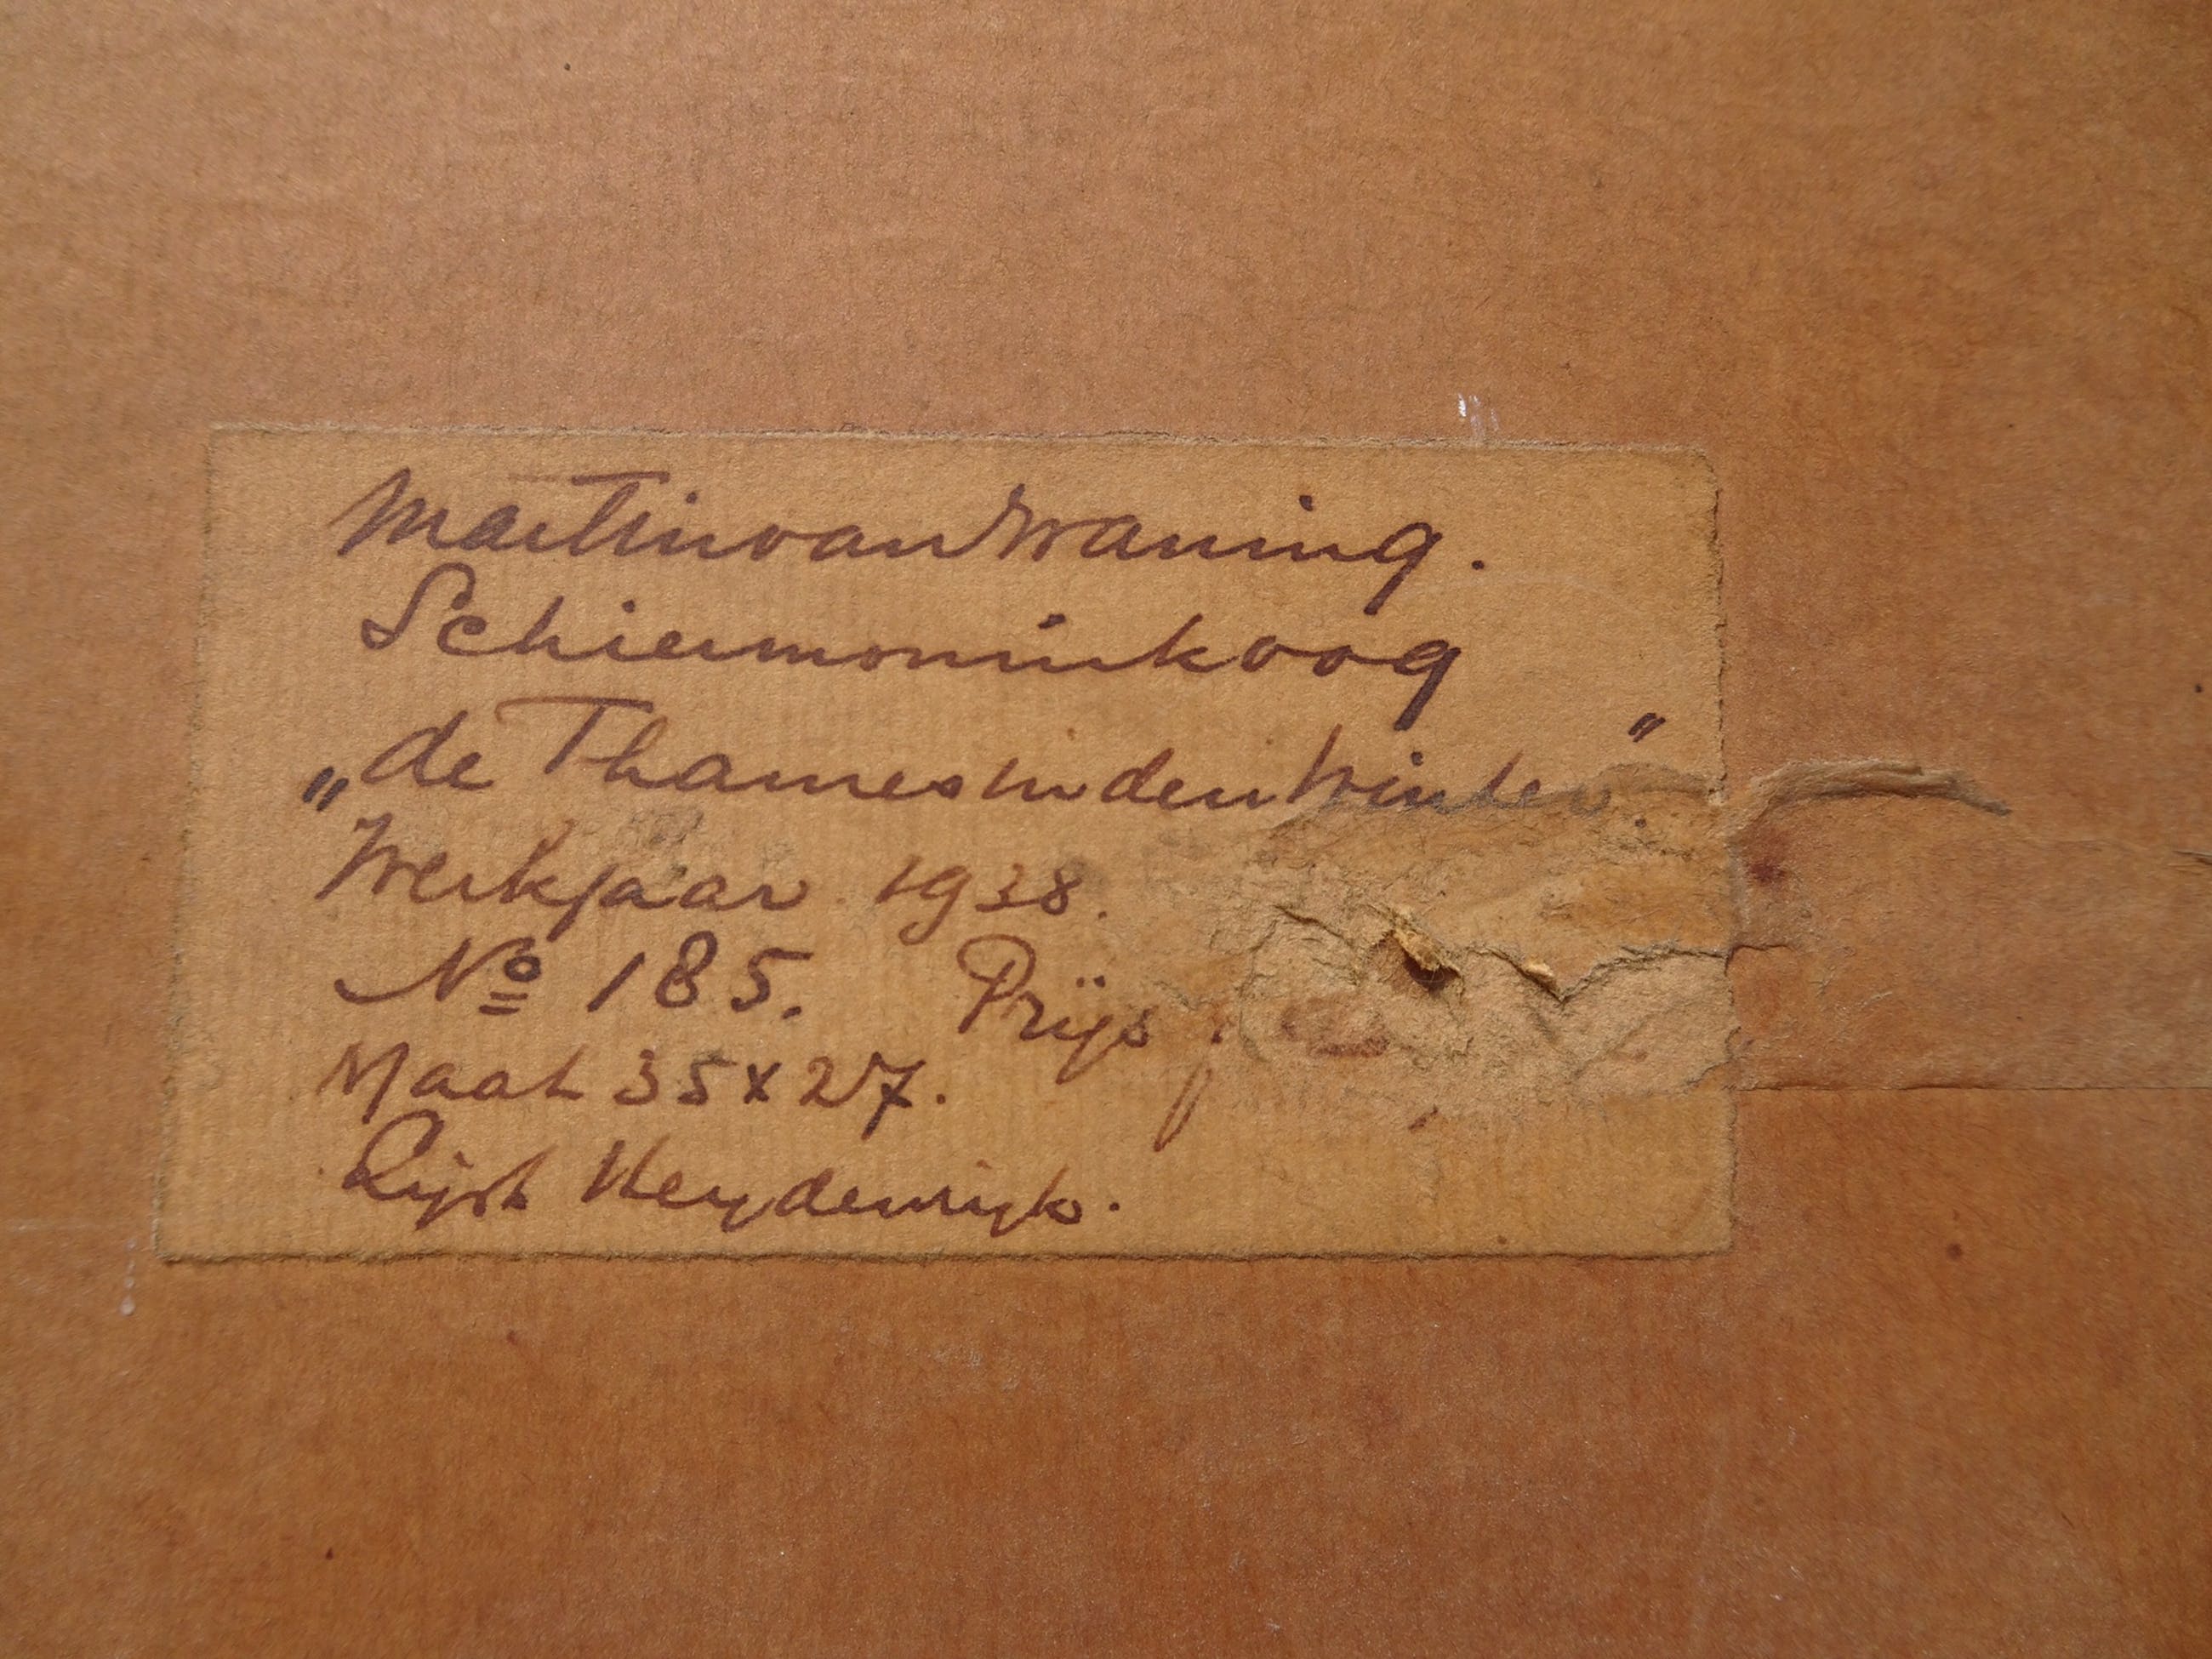 Martin van Waning.
Schiermonnikoog
„de Thames in den Winter."
Werkjaar 1938.
Nº 185. Prijs f
Maat 35 x 27.
Lijst Heydenrijk.